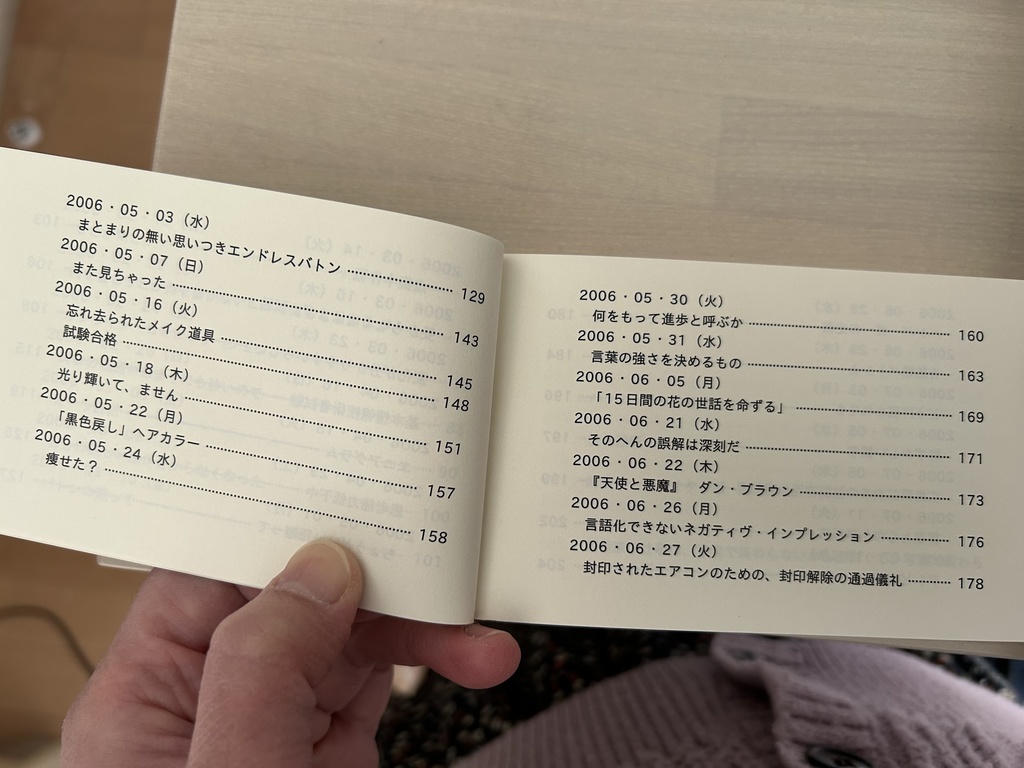 2006・05・03（水）
まとまりの無い思いつきエンドレスバトン ………… 129
2006・05・07（日）
また見ちゃった ………… 143
2006・05・16（火）
忘れ去られたメイク道具 ………… 145
試験合格 ………… 148
2006・05・18（木）
光り輝いて、ません ………… 151
2006・05・22（月）
「黒色戻し」ヘアカラー ………… 157
2006・05・24（水）
痩せた？ ………… 158
2006・05・30（火）
何をもって進歩と呼ぶか ………… 160
2006・05・31（水）
言葉の強さを決めるもの ………… 163
2006・06・05（月）
「15日間の花の世話を命ずる」 ………… 169
2006・06・21（水）
そのへんの誤解は深刻だ ………… 171
2006・06・22（木）
『天使と悪魔』　ダン・ブラウン ………… 173
2006・06・26（月）
言語化できないネガティヴ・インプレッション ………… 176
2006・06・27（火）
封印されたエアコンのための、封印解除の通過儀礼 ………… 178